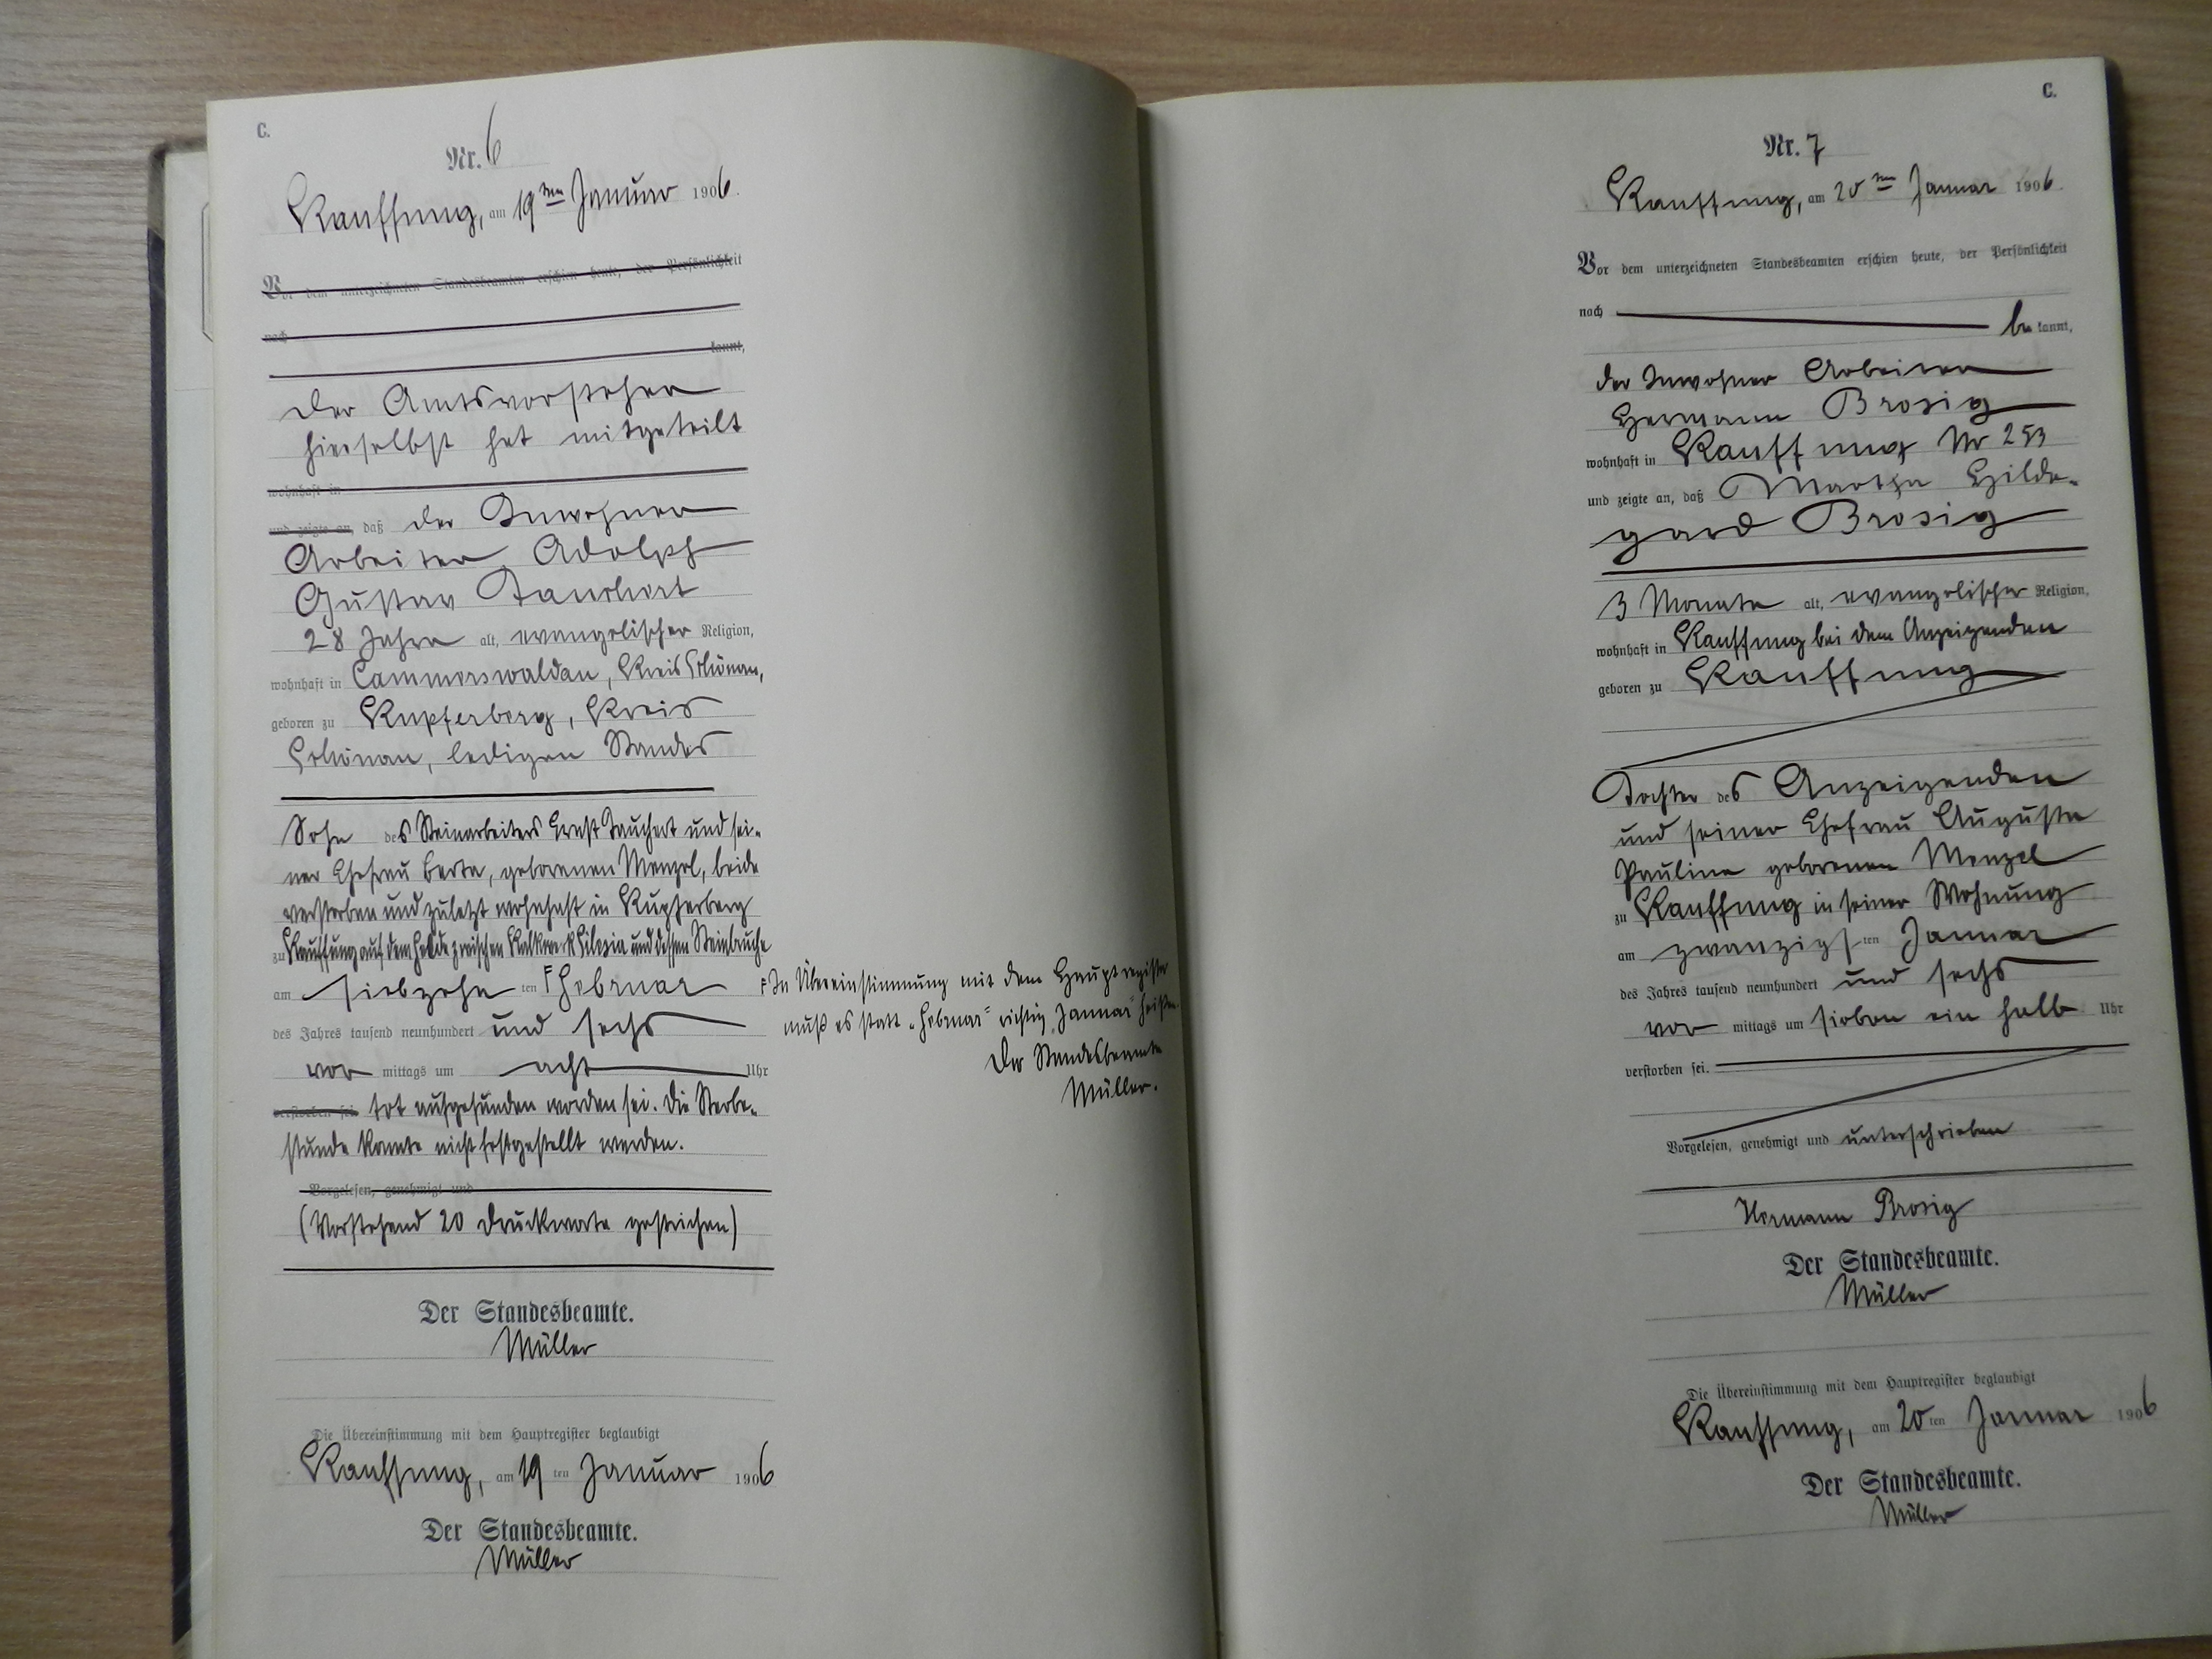 C.
Nr. 6
Kauffung, am 19ten Januar 1906.
Vor dem unterzeichneten Standesbeamten erschien heute, der Persönlichkeit
nach
kannt,
der Amtsvorsteher
hierselbst hat mitgeteilt
wohnhaft in
und zeigte an, daß der Inwohner
Arbeiter Adolph
Gustav Tauchert
28 Jahre alt, evangelischer Religion,
wohnhaft in Cammerswaldau, Kreis Schönau,
geboren zu Kupferberg, Kreis
Schönau, ledigen Standes
Sohn des Steinarbeiters Ernst Tauchert und sei-
ner Ehefrau Berta, geborenen Menzel, beide
verstorben und zuletzt wohnhaft in Kupferberg
zu Kauffung auf dem Felde zwischen Kalkwerk Silesia und dessen Steinbruche
am siebzehn ten F Februar
des Jahres tausend neunhundert und sechs
vor mittags um acht Uhr
verstorben sei. tot aufgefunden worden sei. Die Sterbe-
stunde konnte nicht festgestellt werden.
Vorgelesen, genehmigt und
(Vorstehend 20 Druckworte gestrichen)
Der Standesbeamte.
Müller
Die Übereinstimmung mit dem Hauptregister beglaubigt
Kauffung, am 19 ten Januar 1906
Der Standesbeamte.
Müller
F In Übereinstimmung mit dem Hauptregister
muß es statt „Februar" richtig „Januar" heißen.
Der Standesbeamte
Müller.
C.
Nr. 7
Kauffung, am 20ten Januar 1906.
Vor dem unterzeichneten Standesbeamten erschien heute, der Persönlichkeit
nach
be kannt,
der Inwohner Arbeiter
Hermann Brosig
wohnhaft in Kauffung Nr 253
und zeigte an, daß Martha Hilde-
gard Brosig
3 Monate alt, evangelischer Religion,
wohnhaft in Kauffung bei dem Anzeigenden
geboren zu Kauffung
Tochter des Anzeigenden
und seiner Ehefrau Auguste
Pauline geborenen Menzel
zu Kauffung in seiner Wohnung
am zwanzigs ten Januar
des Jahres tausend neunhundert und sechs
vor mittags um sieben ein halb Uhr
verstorben sei.
Vorgelesen, genehmigt und unterschrieben
Hermann Brosig
Der Standesbeamte.
Müller
Die Übereinstimmung mit dem Hauptregister beglaubigt
Kauffung, am 20 ten Januar 1906
Der Standesbeamte.
Müller